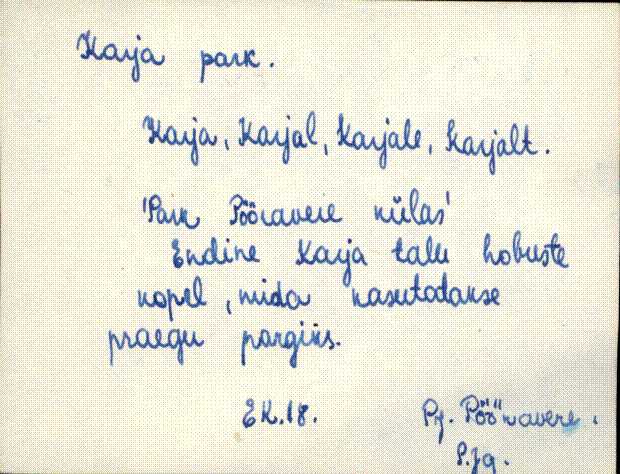 Karja park.
Karja, Karjal, Karjale, Karjalt.
'Park Pööravere külas'
Endine Karja talu hobuste
kopel, mida kasutatakse
praegu pargiks.
EK.18. Pj. Pööravere.
P.Jg.